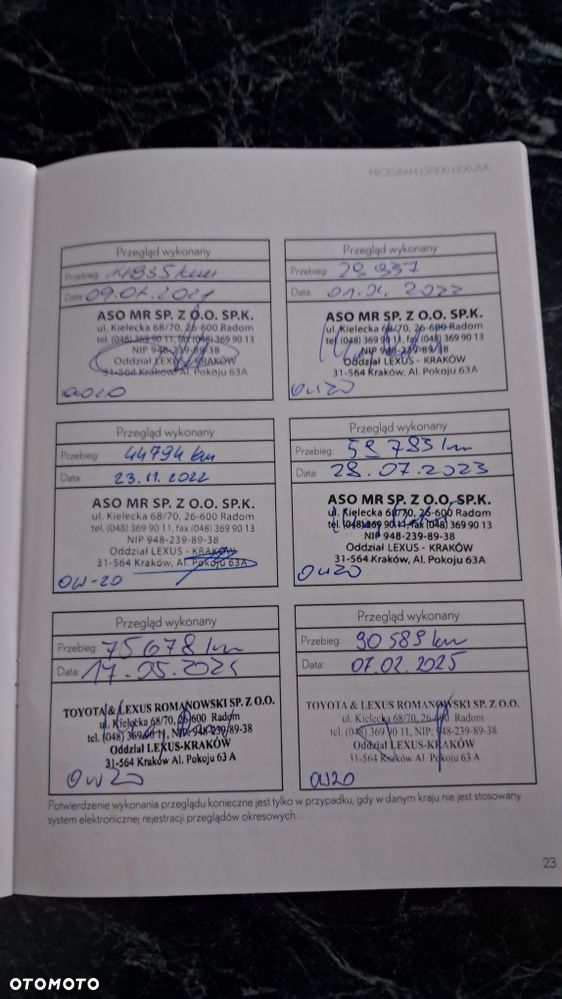 PROGRAM OPIEKI LEXUSA
Przegląd wykonany
Przebieg: 14835 km
Data: 09.07.2021
ASO MR SP. Z O.O. SP.K.
ul. Kielecka 68/70, 26-600 Radom
tel. (048) 369 90 11, fax (048) 369 90 13
NIP 948-239-89-38
Oddział LEXUS - KRAKÓW
31-564 Kraków, Al. Pokoju 63A
Przegląd wykonany
Przebieg: 29 937
Data: 2022
ASO MR SP. Z O.O. SP.K.
ul. Kielecka 68/70, 26-600 Radom
tel. (048) 369 90 11, fax (048) 369 90 13
NIP 948-239-89-38
Oddział LEXUS - KRAKÓW
31-564 Kraków, Al. Pokoju 63A
0W20
Przegląd wykonany
Przebieg: 44794 km
Data: 23.11.2022
ASO MR SP. Z O.O. SP.K.
ul. Kielecka 68/70, 26-600 Radom
tel. (048) 369 90 11, fax (048) 369 90 13
NIP 948-239-89-38
Oddział LEXUS - KRAKÓW
31-564 Kraków, Al. Pokoju 63A
0W-20
Przegląd wykonany
Przebieg: 59 783 km
Data: 28.07.2023
ASO MR SP. Z O.O. SP.K.
ul. Kielecka 68/70, 26-600 Radom
tel. (048) 369 90 11, fax (048) 369 90 13
NIP 948-239-89-38
Oddział LEXUS - KRAKÓW
31-564 Kraków, Al. Pokoju 63A
0W20
Przegląd wykonany
Przebieg: 75 678 km
Data: 17.05.2024
TOYOTA & LEXUS ROMANOWSKI SP. Z O.O.
ul. Kielecka 68/70, 26-600 Radom
tel. (048) 369 90 11, NIP: 948-239-89-38
Oddział LEXUS-KRAKÓW
31-564 Kraków Al. Pokoju 63A
0W20
Przegląd wykonany
Przebieg: 90 589 km
Data: 07.02.2025
TOYOTA & LEXUS ROMANOWSKI SP. Z O.O.
ul. Kielecka 68/70, 26-600 Radom
tel. (048) 369 90 11, NIP: 948-239-89-38
Oddział LEXUS-KRAKÓW
31-564 Kraków Al. Pokoju 63A
0W20
Potwierdzenie wykonania przeglądu konieczne jest tylko w przypadku, gdy w danym kraju nie jest stosowany
system elektronicznej rejestracji przeglądów okresowych.
23
OTOMOTO